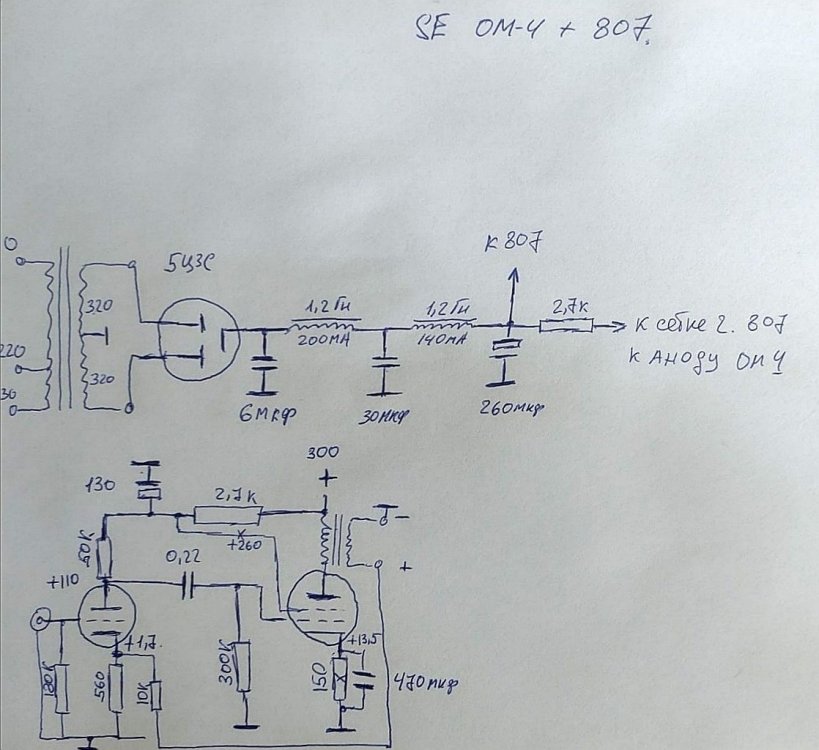 SE ОМ-4 + 807.
0
5Ц3С
к 807
320
1,2 Гн
1,2 Гн
2,7к
200МА
140МА
к сетке 2. 807
к Аноду ОМ4
220
320
6мкф
30мкф
260мкф
300
+
130
2,7к
-
+260
0,22
+
+110
+1,7
+13,5
300к
560
10к
150
470мкф